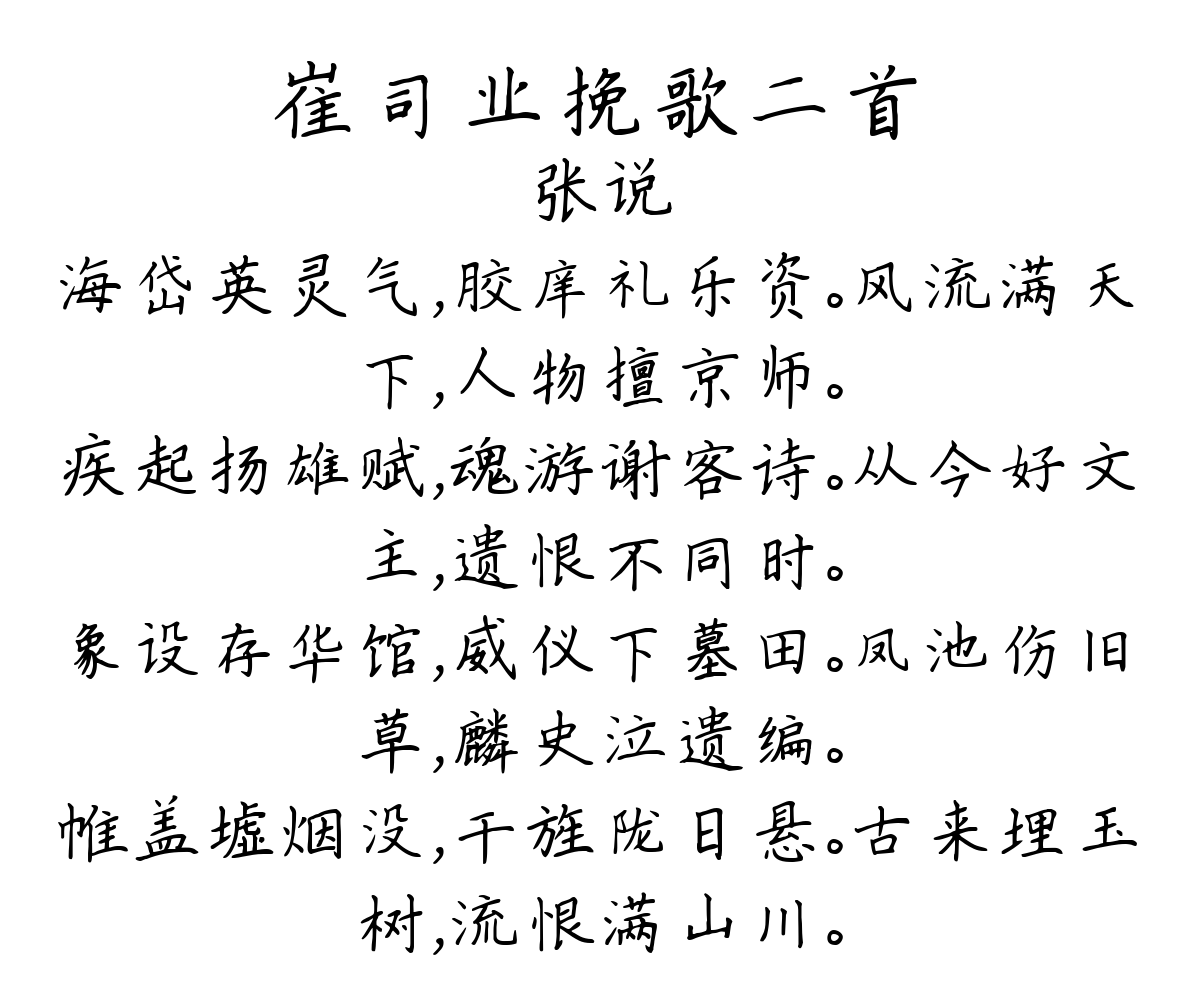 崔司业挽歌二首
张说
海岱英灵气,胶庠礼乐资。风流满天
下,人物擅京师。
疾起扬雄赋,魂游谢客诗。从今好文
主,遗恨不同时。
象设存华馆,威仪下墓田。凤池伤旧
草,麟史泣遗编。
帷盖墟烟没,干旌陇日悬。古来埋玉
树,流恨满山川。